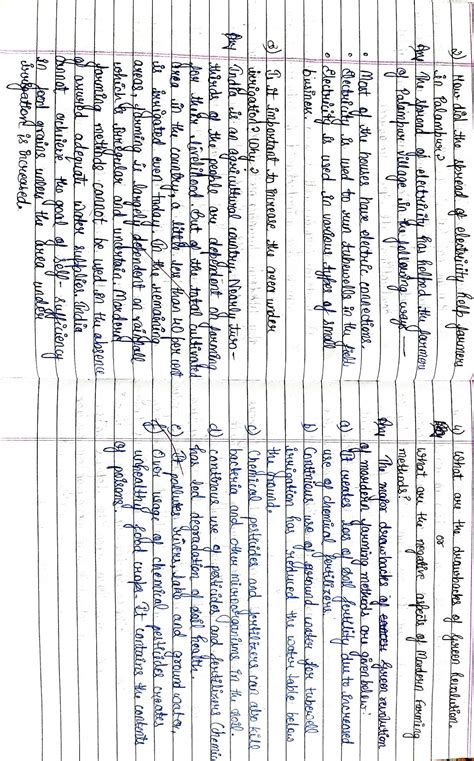 2) How did the spread of electricity help farmers
in Palampur?
Ans The spread of electricity has helped the farmers
of Palampur village in the following ways —
• Most of the houses have electric connections.
• Electricity is used to run tubewells in the field
• Electricity is used in various types of small
business.
3) Is it important to increase the area under
irrigation? Why?
Ans India is an agricultural country. Nearly two-
thirds of the people are dependent on farming
for their livelihood. But of the total cultivated
area in the country, a little less than 40 per cent
is irrigated even today. In the remaining
areas, farming is largely dependent on rainfall
which is irregular and uncertain. Mordern
farming methods cannot be used in the absence
of assured adequate water supplies. India
cannot achieve the goal of self-sufficiency
in food grains unless the area under
irrigation is increased.
4) What are the drawbacks of Green Revolution.
or
What are the negative aspects of Modern farming
methods?
Ans The major drawbacks of Green revolution
of mordern farming methods are given below:
a) It creates loss of soil fertility due to increased
use of chemical fertilizers.
b) Continuous use of ground water for tubewell
irrigation has reduced the water table below
the ground.
c) Chemical pesticides and fertilizers can also kill
bacteria and other microorganisms in the soil.
d) continous use of pesticides and fertilizers (chemical
has led degradation of soil health.
e) It pollutes rivers, lake and ground water,
f) Over usage of chemical pesticides creates
unhealthy food crops. It contains the contents
of poisons.